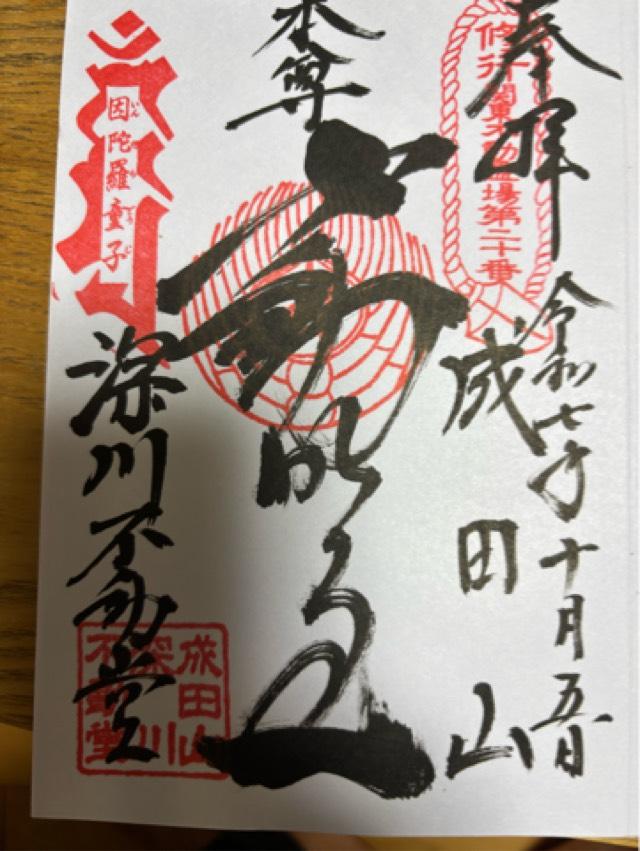 奉拝
修行 関東不動霊場第二十番
令和七年十月五日
成田山
本尊
不動明王
因陀羅童子
いんだらどうじ
深川不動堂
成田山
深川
不動堂